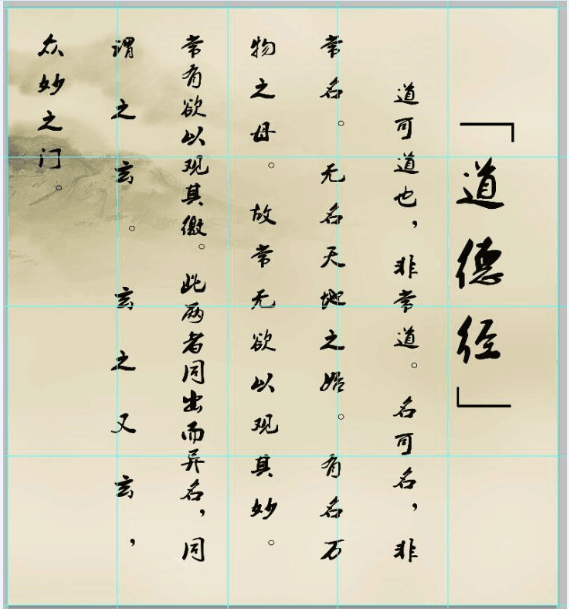 「道德经」
道可道也，非常道。名可名，非
常名。无名天地之始。有名万
物之母。故常无欲以观其妙。
常有欲以观其徼。此两者同出而异名，同
谓之玄。玄之又玄，
众妙之门。